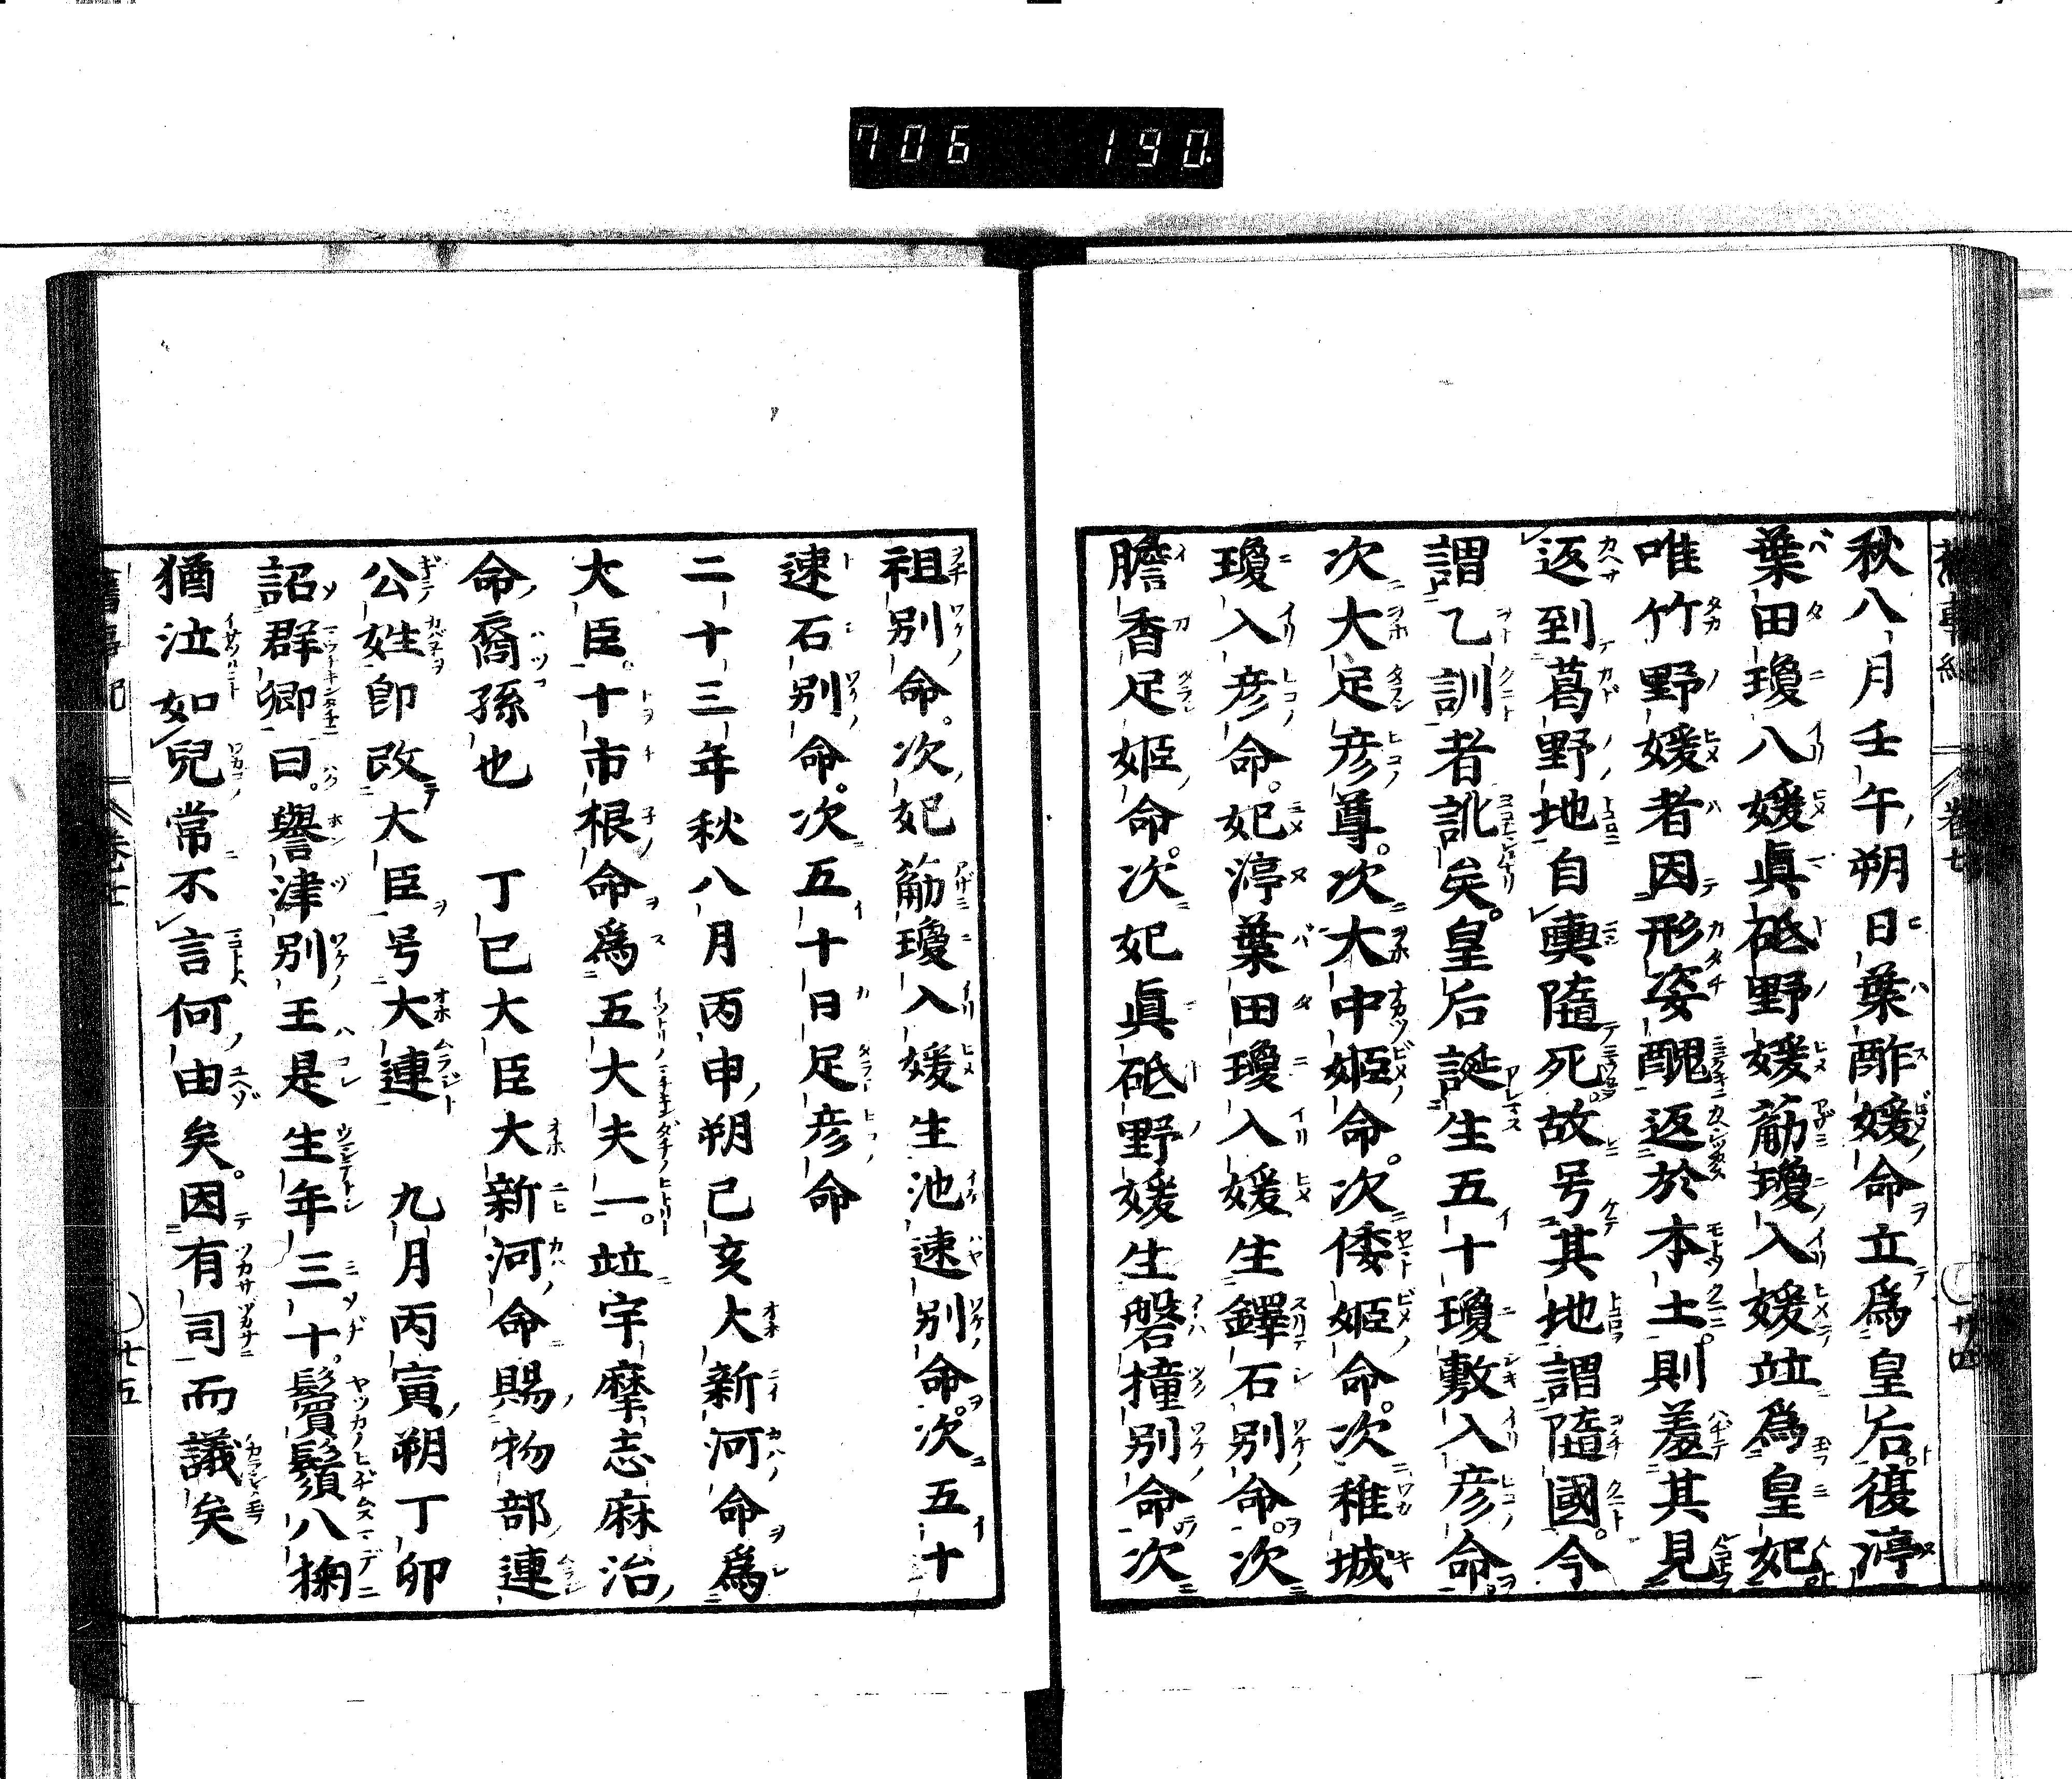 706 190
秋八月壬午朔日葉酢媛命立爲皇后復渟
葉田瓊入媛眞砥野媛薊瓊入媛竝爲皇妃
唯竹野媛者因形姿醜返於本土則羞其見
返到葛野地自輿隨死故号其地謂隨國今
謂乙訓者訛矣皇后誕生五十瓊敷入彦命
次大足彦尊次大中姬命次倭姬命次稚城
瓊入彦命妃渟葉田瓊入媛生鐸石別命次
膽香足姬命次妃眞砥野媛生磐撞別命次
祖別命次妃薊瓊入媛生池速別命次五十
速石別命次五十日足彦命
二十三年秋八月丙申朔己亥大新河命爲
大臣十市根命爲五大夫一竝宇摩志麻治
命裔孫也 丁巳大臣大新河命賜物部連
公姓卽改大臣号大連 九月丙寅朔丁卯
詔群卿曰譽津別王是生年三十鬚鬚八掬
猶泣如兒常不言何由矣因有司而議矣
卷七
廿四
廿五